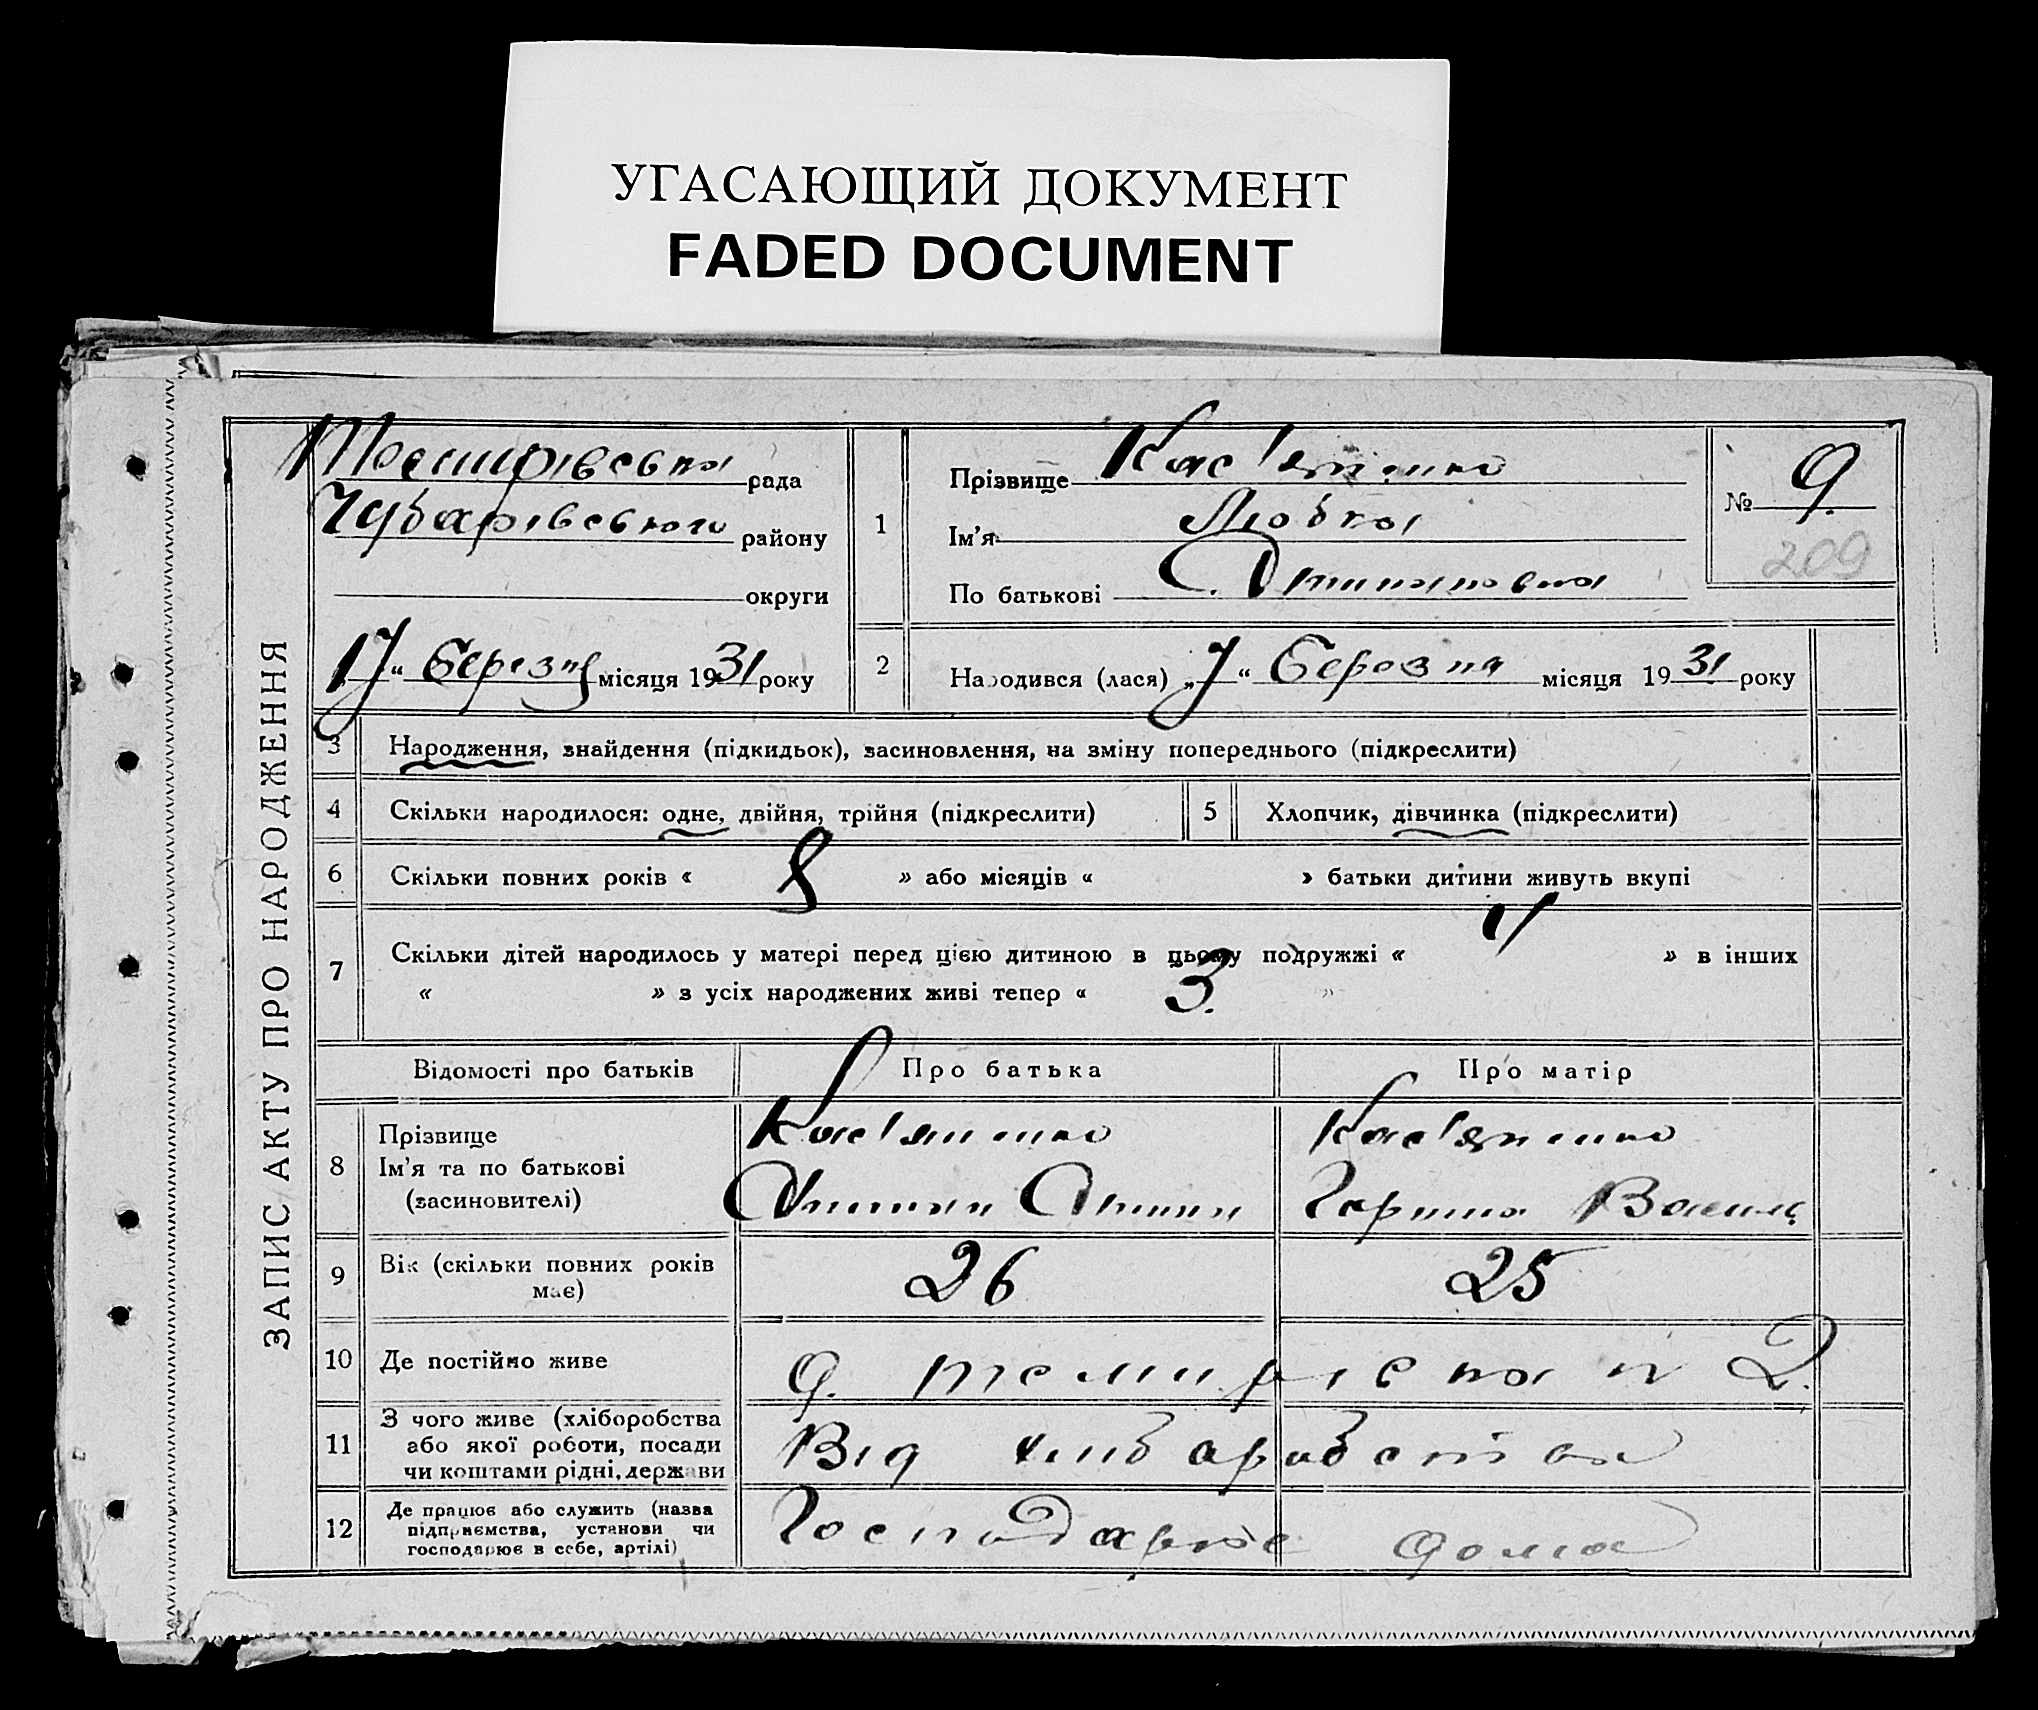 УГАСАЮЩИЙ ДОКУМЕНТ
FADED DOCUMENT
ЗАПИС АКТУ ПРО НАРОДЖЕННЯ
Темирівська рада
Чубарівського району
округи
17 “ Березня місяця 1931 року
1
Прізвище Кас'яненко
Ім'я Любка
По батькові
№ 9.
209
2
Народився (лася) „7“ Березня місяця 1931 року
3 Народження, знайдення (підкидьок), засиновлення, на зміну попереднього (підкреслити)
4 Скільки народилося: одне, двійня, трійня (підкреслити) 5 Хлопчик, дівчинка (підкреслити)
6 Скільки повних років « 8 » або місяців « » батьки дитини живуть вкупі
7 Скільки дітей народилось у матері перед цією дитиною в цьому подружжі « » в інших
« » з усіх народжених живі тепер « 3. »
Відомості про батьків Про батька Про матір
8 Прізвище Кас'яненко Кас'яненко
Ім'я та по батькові Василь
(засиновителі)
9 Вік (скільки повних років має) 26 25
10 Де постійно живе с. Темирівка № 2.
11 З чого живе (хліборобства або якої роботи, посади чи коштами рідні, держави Від хліборобства
12 Де працює або служить (назва підприємства, установи чи господарює в себе, артілі) Господарює дома